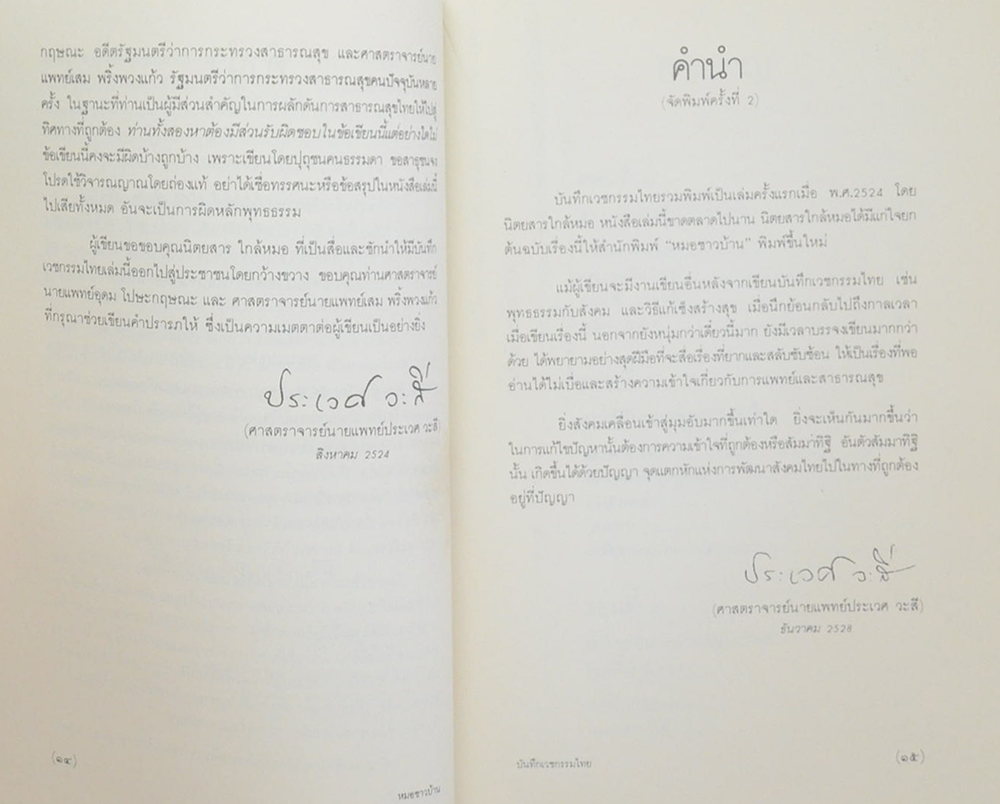 กฤษณะ อดีตรัฐมนตรีว่าการกระทรวงสาธารณสุข และศาสตราจารย์นาย
แพทย์เสม พริ้งพวงแก้ว รัฐมนตรีว่าการกระทรวงสาธารณสุขคนปัจจุบันหลาย
ครั้ง ในฐานะที่ท่านเป็นผู้มีส่วนสำคัญในการผลักดันการสาธารณสุขไทยให้ไปสู่
ทิศทางที่ถูกต้อง ท่านทั้งสองหาต้องมีส่วนรับผิดชอบในข้อเขียนนี้แต่อย่างใดไม่
ข้อเขียนนี้คงจะมีผิดบ้างถูกบ้าง เพราะเขียนโดยปุถุชนคนธรรมดา ขอสาธุชนจง
โปรดใช้วิจารณญาณโดยถ่องแท้ อย่าได้เชื่อทรรศนะหรือข้อสรุปในหนังสือเล่มนี้
ไปเสียทั้งหมด อันจะเป็นการผิดหลักพุทธธรรม
ผู้เขียนขอขอบคุณนิตยสาร ใกล้หมอ ที่เป็นสื่อและชักนำให้มีบันทึก
เวชกรรมไทยเล่มนี้ออกไปสู่ประชาชนโดยกว้างขวาง ขอบคุณท่านศาสตราจารย์
นายแพทย์อุดม โปษะกฤษณะ และ ศาสตราจารย์นายแพทย์เสม พริ้งพวงแก้ว
ที่กรุณาช่วยเขียนคำปรารภให้ ซึ่งเป็นความเมตตาต่อผู้เขียนเป็นอย่างยิ่ง
ประเวศ วะสี
(ศาสตราจารย์นายแพทย์ประเวศ วะสี)
สิงหาคม 2524
(๑๔)
หมอชาวบ้าน
คำนำ
(จัดพิมพ์ครั้งที่ 2)
บันทึกเวชกรรมไทยรวมพิมพ์เป็นเล่มครั้งแรกเมื่อ พ.ศ.2524 โดย
นิตยสารใกล้หมอ หนังสือเล่มนี้ขาดตลาดไปนาน นิตยสารใกล้หมอได้มีแก่ใจยก
ต้นฉบับเรื่องนี้ให้สำนักพิมพ์ “หมอชาวบ้าน” พิมพ์ขึ้นใหม่
แม้ผู้เขียนจะมีงานเขียนอื่นหลังจากเขียนบันทึกเวชกรรมไทย เช่น
พุทธธรรมกับสังคม และวิธีแก้เซ็งสร้างสุข เมื่อนึกย้อนกลับไปถึงกาลเวลา
เมื่อเขียนเรื่องนี้ นอกจากยังหนุ่มกว่าเดี๋ยวนี้มาก ยังมีเวลาบรรจงเขียนมากกว่า
ด้วย ได้พยายามอย่างสุดฝีมือที่จะสื่อเรื่องที่ยากและสลับซับซ้อน ให้เป็นเรื่องที่พอ
อ่านได้ไม่เบื่อและสร้างความเข้าใจเกี่ยวกับการแพทย์และสาธารณสุข
ยิ่งสังคมเคลื่อนเข้าสู่มุมอับมากขึ้นเท่าใด ยิ่งจะเห็นกันมากขึ้นว่า
ในการแก้ไขปัญหานั้นต้องการความเข้าใจที่ถูกต้องหรือสัมมาทิฐิ อันตัวสัมมาทิฐิ
นั้น เกิดขึ้นได้ด้วยปัญญา จุดแตกหักแห่งการพัฒนาสังคมไทยไปในทางที่ถูกต้อง
อยู่ที่ปัญญา
ประเวศ วะสี
(ศาสตราจารย์นายแพทย์ประเวศ วะสี)
ธันวาคม 2528
บันทึกเวชกรรมไทย
(๑๕)